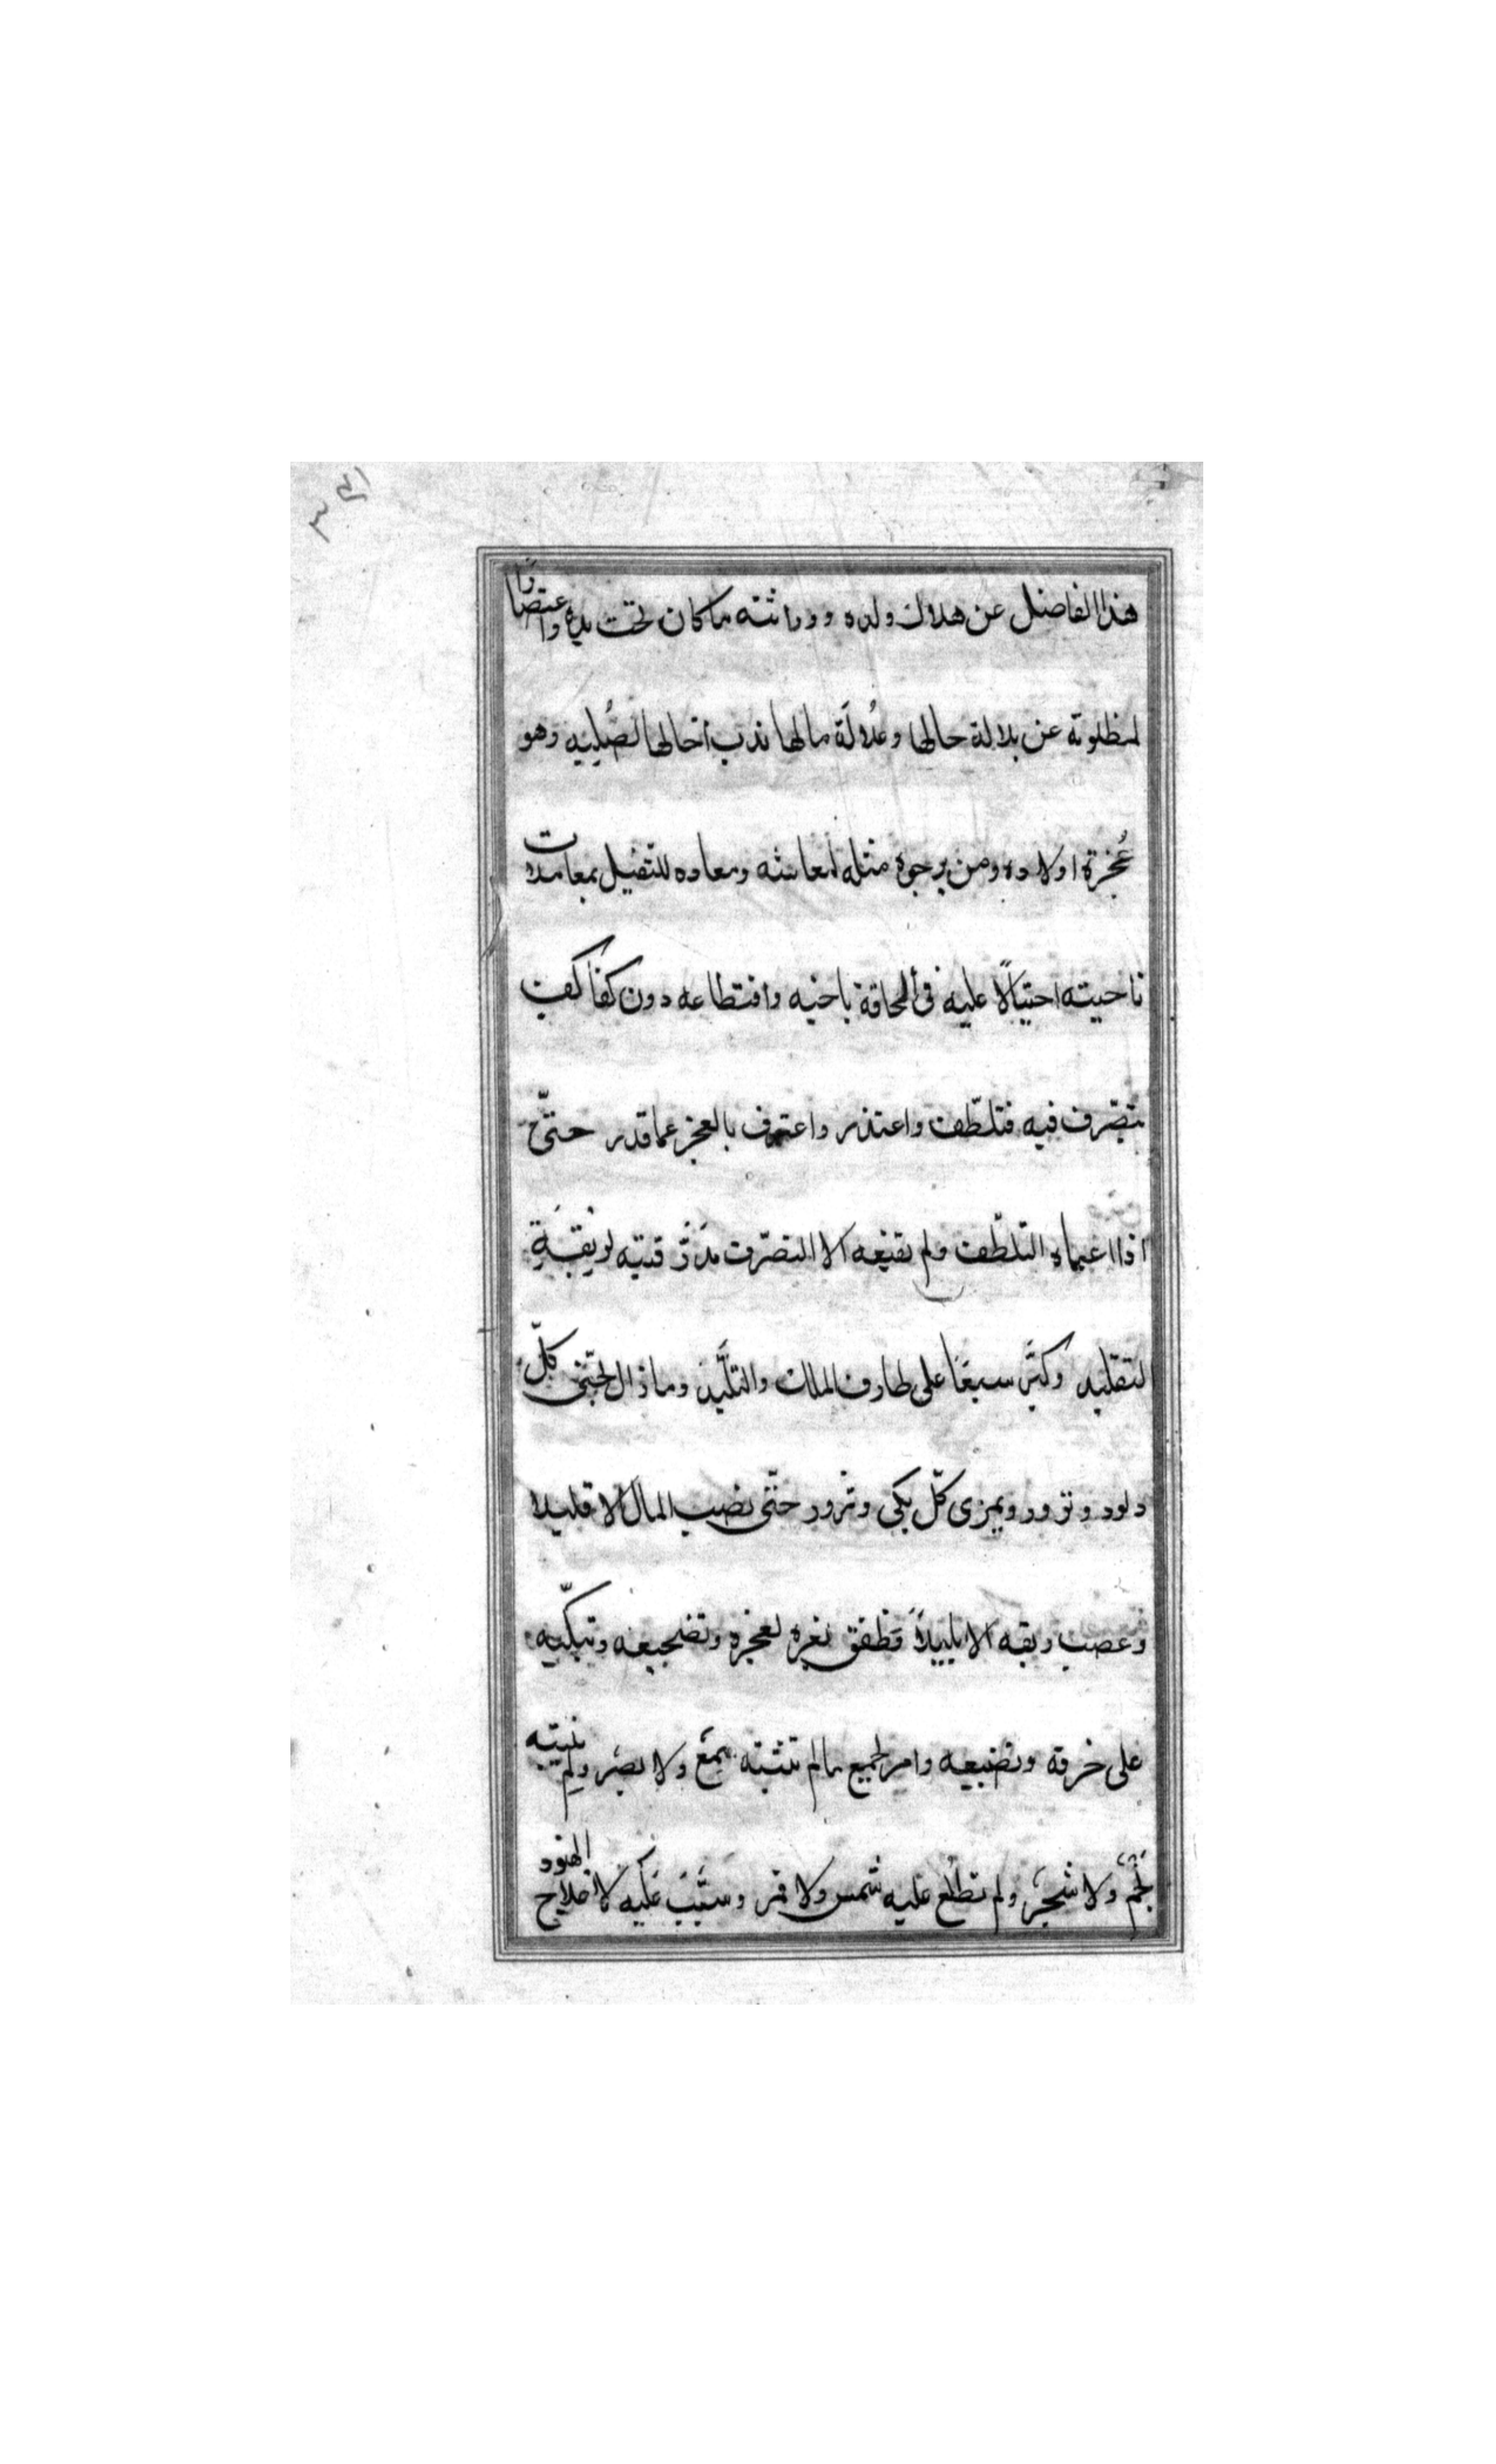 هذا الفاضل عن هلاك ولده ووراثته ما كان تحت يده واعتصارًا
لمظلوته عن بلالة حالها وعُلالَة مالها ندب اخا لها لصُلبِيه وهو
عُجزة اولاده ومن يرجوه مثله لمعاشه ومعاده للتفيل بمعاملات
ناحيته احتيالًا عليه في الحاقة باخيه واقتطاعه دون كفاكفِ
يتصّرف فيه فتلطّف واعتذر واعترف بالعجز عما قدر حتّى
اذا اعياه التلطّف ولم يقنعه الا التصرّف مدَّ رقبته لربقَةِ
لتقليد وكبَّر سبعًا على طارف الملك والتَّليد وما زال يحبّى كلّ
دلود وتزور ويمزى كلّ بكى وثرور حتّى نضب المال الا قليلا
وعصب ريقه الا بليلاً فطفق يغره لعجزه وتضجيعه وتبكّيه
على خرقه وتضييعه وامر لجميع مالم تثبته سمعَ ولا بصَر ولم ينبته
نجم ولا شجر ولم تطلُع عليه شمس ولا قمر وسبَّبَ عَلَيه لاعلاج الهنود